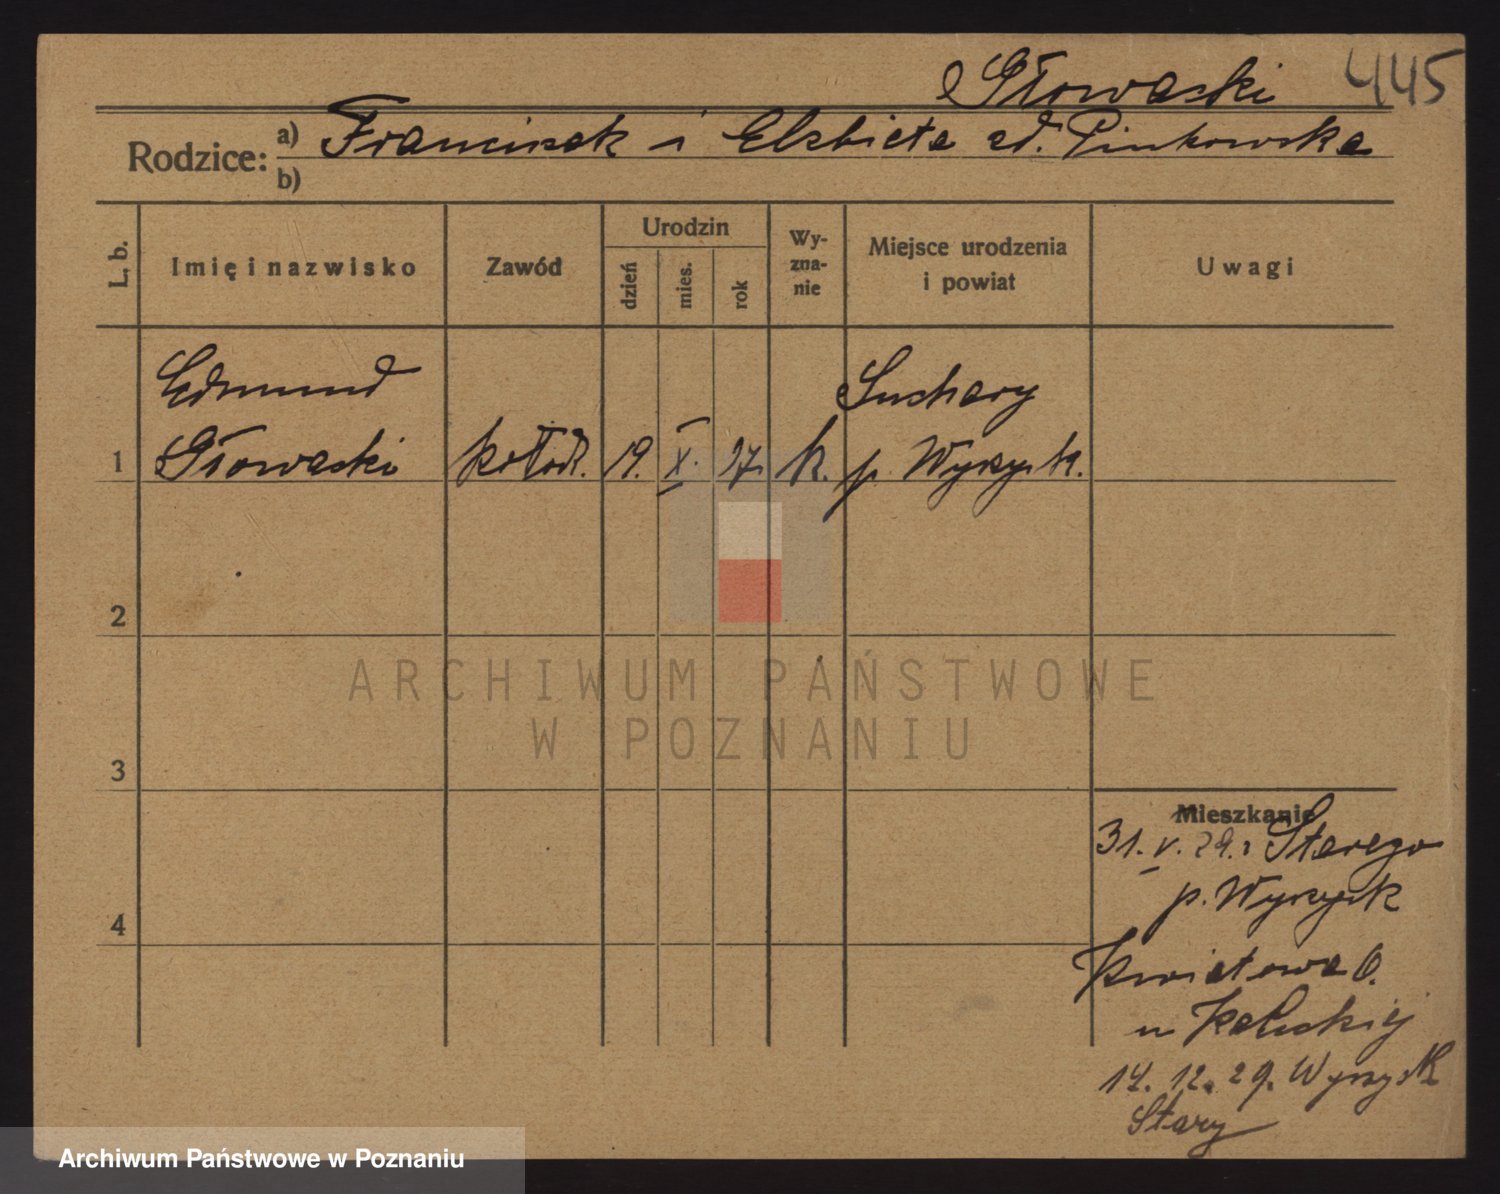 Głowacki 445
Rodzice: a) Franciszek i Elżbieta zd. Pinkowska
b)
L. b. Imię i nazwisko Zawód Urodzin dzień mies. rok Wyznanie Miejsce urodzenia i powiat Uwagi
Edmund Suchary
1 Głowacki kołodz. 19. X. 27. k. p. Wyrzysk.
2
ARCHIWUM PAŃSTWOWE
W POZNANIU
3
Mieszkanie
31. V. 29. z Starego
p. Wyrzysk
4
Kwiatowa 6.
u Kałuckiej
14. 12. 29. Wyrzysk
Stary
Archiwum Państwowe w Poznaniu